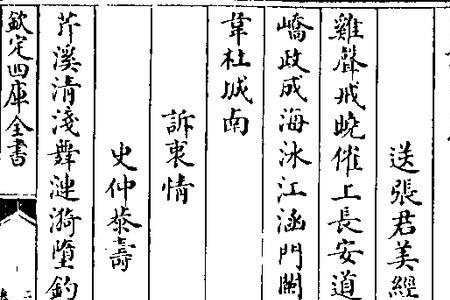 送張君美經
雞聲戒曉催上長安道
嶠政成海沐江涵門闌
韋杜城南
訴衷情
史仲恭壽
芹溪清淺舞漣漪墮釣
欽定四庫全書